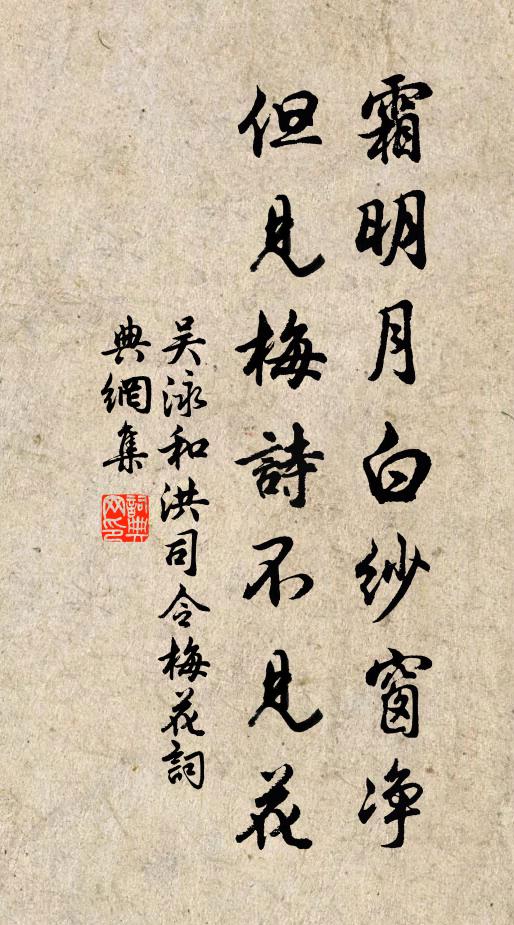 霜明月白纱窗净
但見梅詩不見花
吴泳和洪司令梅花詞
典網集
詞典网印